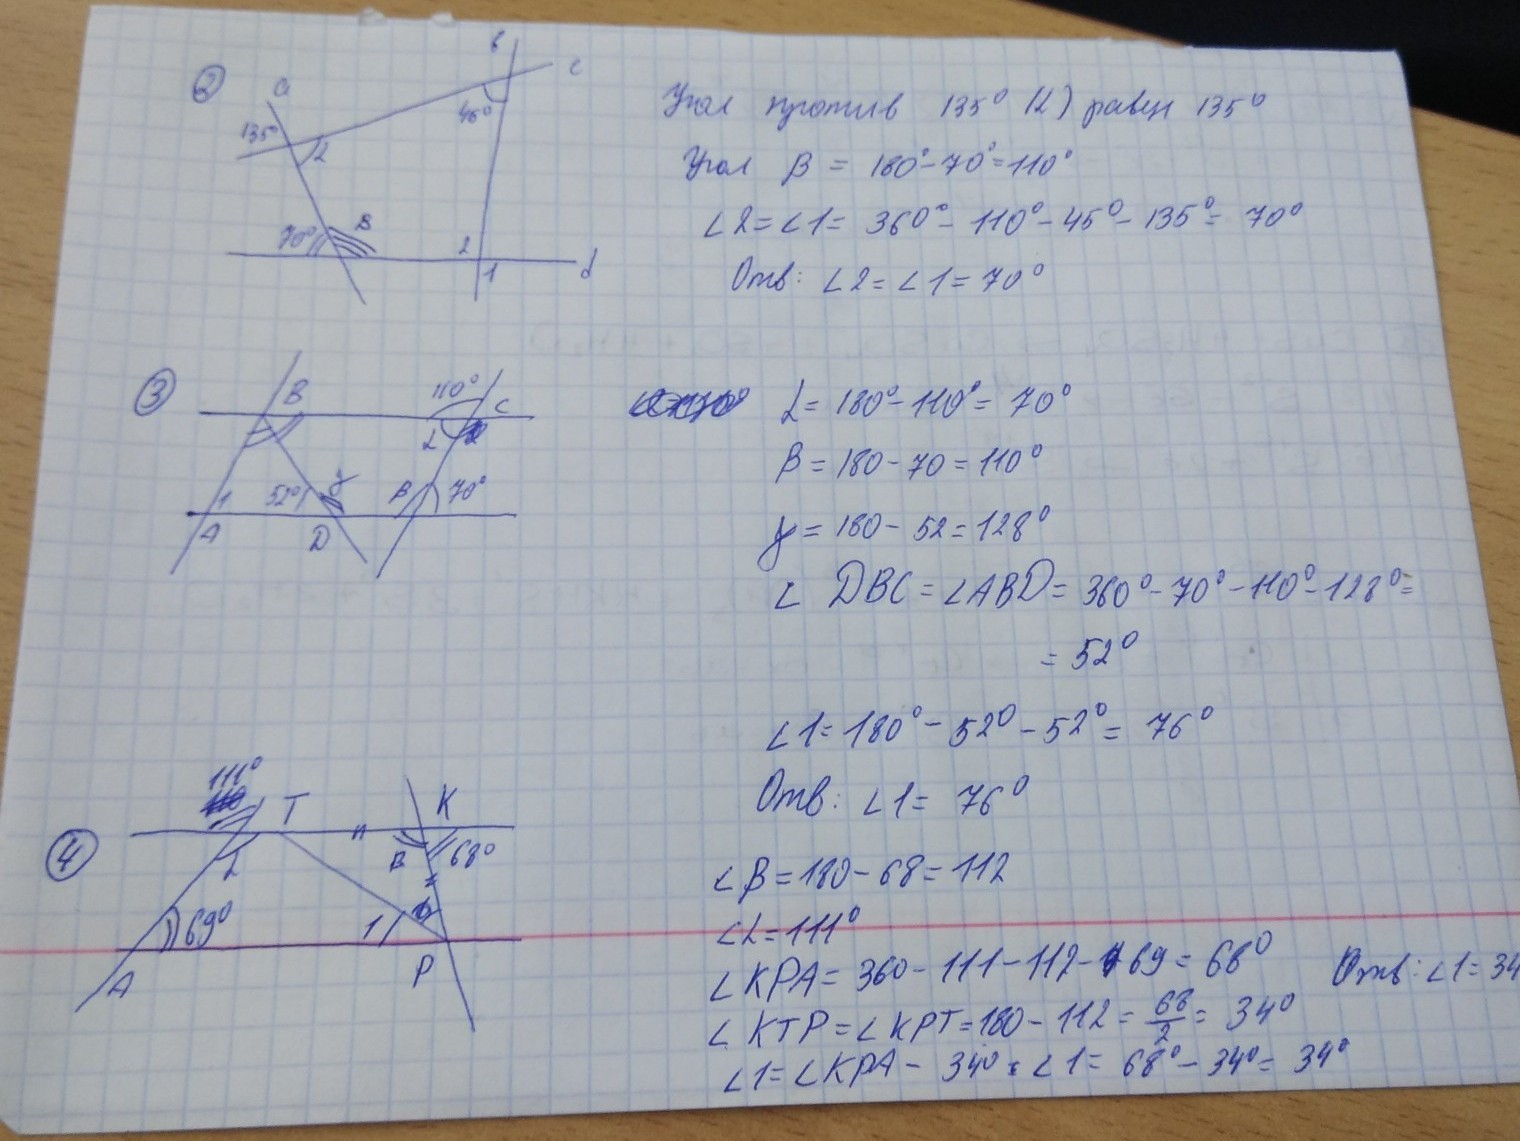 2
a
в
с
135°
45°
α
70°
β
2
1
d
Угол против 135° (α) равен 135°
Угол β = 180°-70°=110°
∠2=∠1= 360°-110°-45°-135°= 70°
Отв: ∠2=∠1=70°
3
B
110°
C
α
1
52°
γ
β
70°
A
D
α= 180°-110°= 70°
β=180-70=110°
γ=180-52=128°
∠ DBC=∠ABD= 360°-70°-110°-128°=
= 52°
∠1=180°-52°-52°= 76°
Отв: ∠1= 76°
4
111°
T
K
α
β
68°
69°
1
A
P
∠β=180-68=112
∠α=111°
∠KPA= 360-111-112-69=68°
Отв: ∠1=34
∠KTP=∠KPT=180-112=68/2=34°
∠1=∠KPA- 34° ∠1= 68°-34°=34°